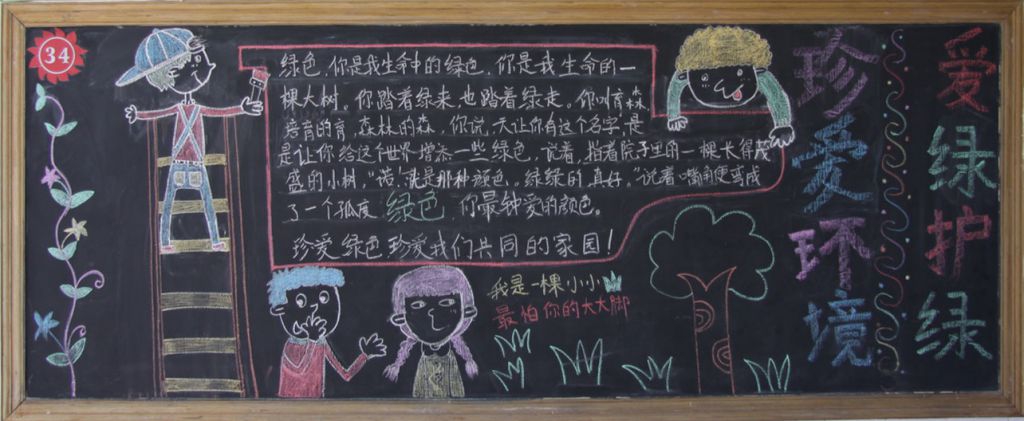 34
绿色，你是我生命中的绿色，你是我生命的一
棵大树。你踏着绿来也踏着绿走。你叫育森
培育的育，森林的森，你说，天让你有这个名字，是
是让你给这个世界增添一些绿色，说着，指着院子里的一棵长得茂
盛的小树，“诺！就是那种颜色。绿绿的真好。”说着嘴角便变成
了一个弧度 绿色 你最钟爱的颜色。
珍爱绿色 珍爱我们共同的家园！
我是一棵小小
最怕你的大大脚
珍爱环境
爱绿护绿